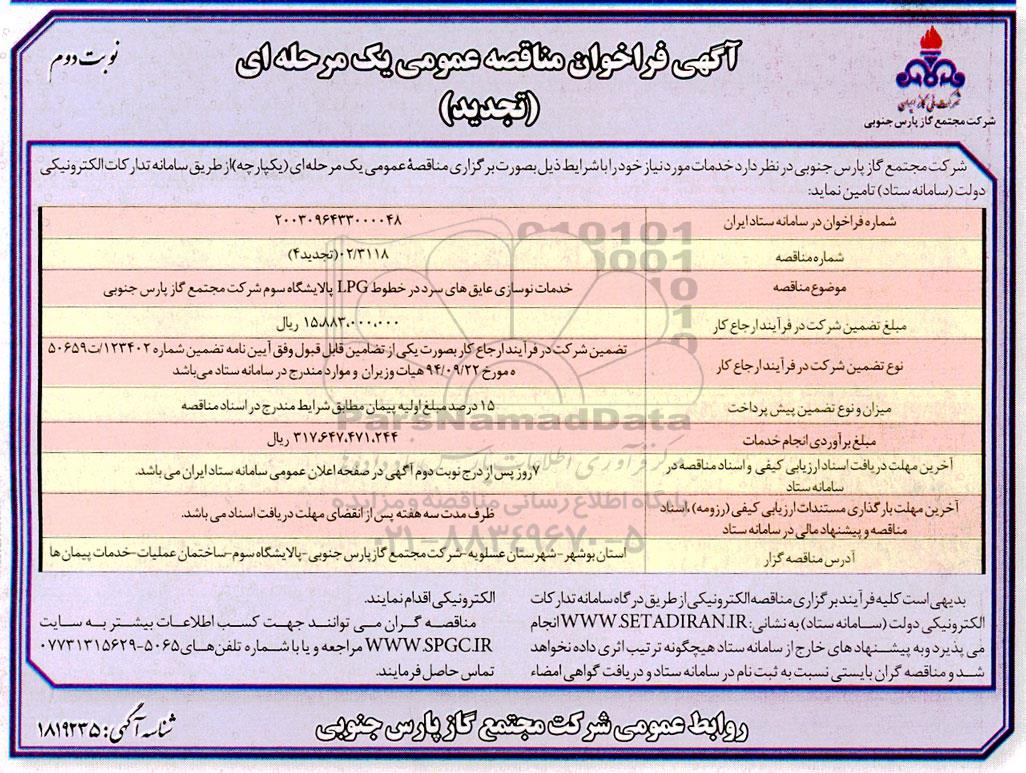 آگهی فراخوان مناقصه عمومی یک مرحله ای
(تجدید)
نوبت دوم
شرکت ملی گاز ایران
شرکت مجتمع گاز پارس جنوبی
شرکت مجتمع گاز پارس جنوبی در نظر دارد خدمات مورد نیاز خود را با شرایط ذیل بصورت برگزاری مناقصهٔ عمومی یک مرحله‌ای (یکپارچه) از طریق سامانه تدارکات الکترونیکی
دولت (سامانه ستاد) تامین نماید:
شماره فراخوان در سامانه ستاد ایران ۲۰۰۳۰۹۶۴۳۳۰۰۰۰۴۸
شماره مناقصه ۰۲/۳۱۱۸(تجدید۴)
موضوع مناقصه خدمات نوسازی عایق های سرد در خطوط LPG پالایشگاه سوم شرکت مجتمع گاز پارس جنوبی
مبلغ تضمین شرکت در فرآیند ارجاع کار ۱۵،۸۸۳،۰۰۰،۰۰۰ ریال
نوع تضمین شرکت در فرآیند ارجاع کار تضمین شرکت در فرآیند ارجاع کار بصورت یکی از تضامین قابل قبول وفق آیین نامه تضمین شماره ۱۲۳۴۰۲/ت۵۰۶۵۹
ه مورخ ۹۴/۰۹/۲۲ هیات وزیران و موارد مندرج در سامانه ستاد می‌باشد
میزان و نوع تضمین پیش پرداخت ۱۵ درصد مبلغ اولیه پیمان مطابق شرایط مندرج در اسناد مناقصه
مبلغ برآوردی انجام خدمات ۳۱۷،۶۴۷،۴۷۱،۲۴۴ ریال
آخرین مهلت دریافت اسناد ارزیابی کیفی و اسناد مناقصه در
سامانه ستاد ۷ روز پس از درج نوبت دوم آگهی در صفحه اعلان عمومی سامانه ستاد ایران می باشد.
آخرین مهلت بارگذاری مستندات ارزیابی کیفی (رزومه)، اسناد
مناقصه و پیشنهاد مالی در سامانه ستاد ظرف مدت سه هفته پس از انقضای مهلت دریافت اسناد می باشد.
آدرس مناقصه گزار استان بوشهر -شهرستان عسلویه-شرکت مجتمع گاز پارس جنوبی-پالایشگاه سوم-ساختمان عملیات-خدمات پیمان ها
ParsNamadData
مرکز فرآوری اطلاعات پارس نماد داده‌ها
پایگاه اطلاع رسانی مناقصه و مزایده
۰۲۱-۸۸۳۴۹۶۷۰-۵
بدیهی است کلیه فرآیند برگزاری مناقصه الکترونیکی از طریق درگاه سامانه تدارکات
الکترونیکی دولت (سامانه ستاد) به نشانی: WWW.SETADIRAN.IR انجام
می پذیرد و به پیشنهاد های خارج از سامانه ستاد هیچگونه ترتیب اثری داده نخواهد
شد و مناقصه گران بایستی نسبت به ثبت نام در سامانه ستاد و دریافت گواهی امضاء
الکترونیکی اقدام نمایند.
مناقصه گران می توانند جهت کسب اطلاعات بیشتر به سایت
WWW.SPGC.IR مراجعه و یا با شماره تلفن های ۵۰۶۵-۰۷۷۳۱۳۱۵۶۲۹
تماس حاصل فرمایند.
روابط عمومی شرکت مجتمع گاز پارس جنوبی
شناسه آگهی: ۱۸۱۹۲۳۵